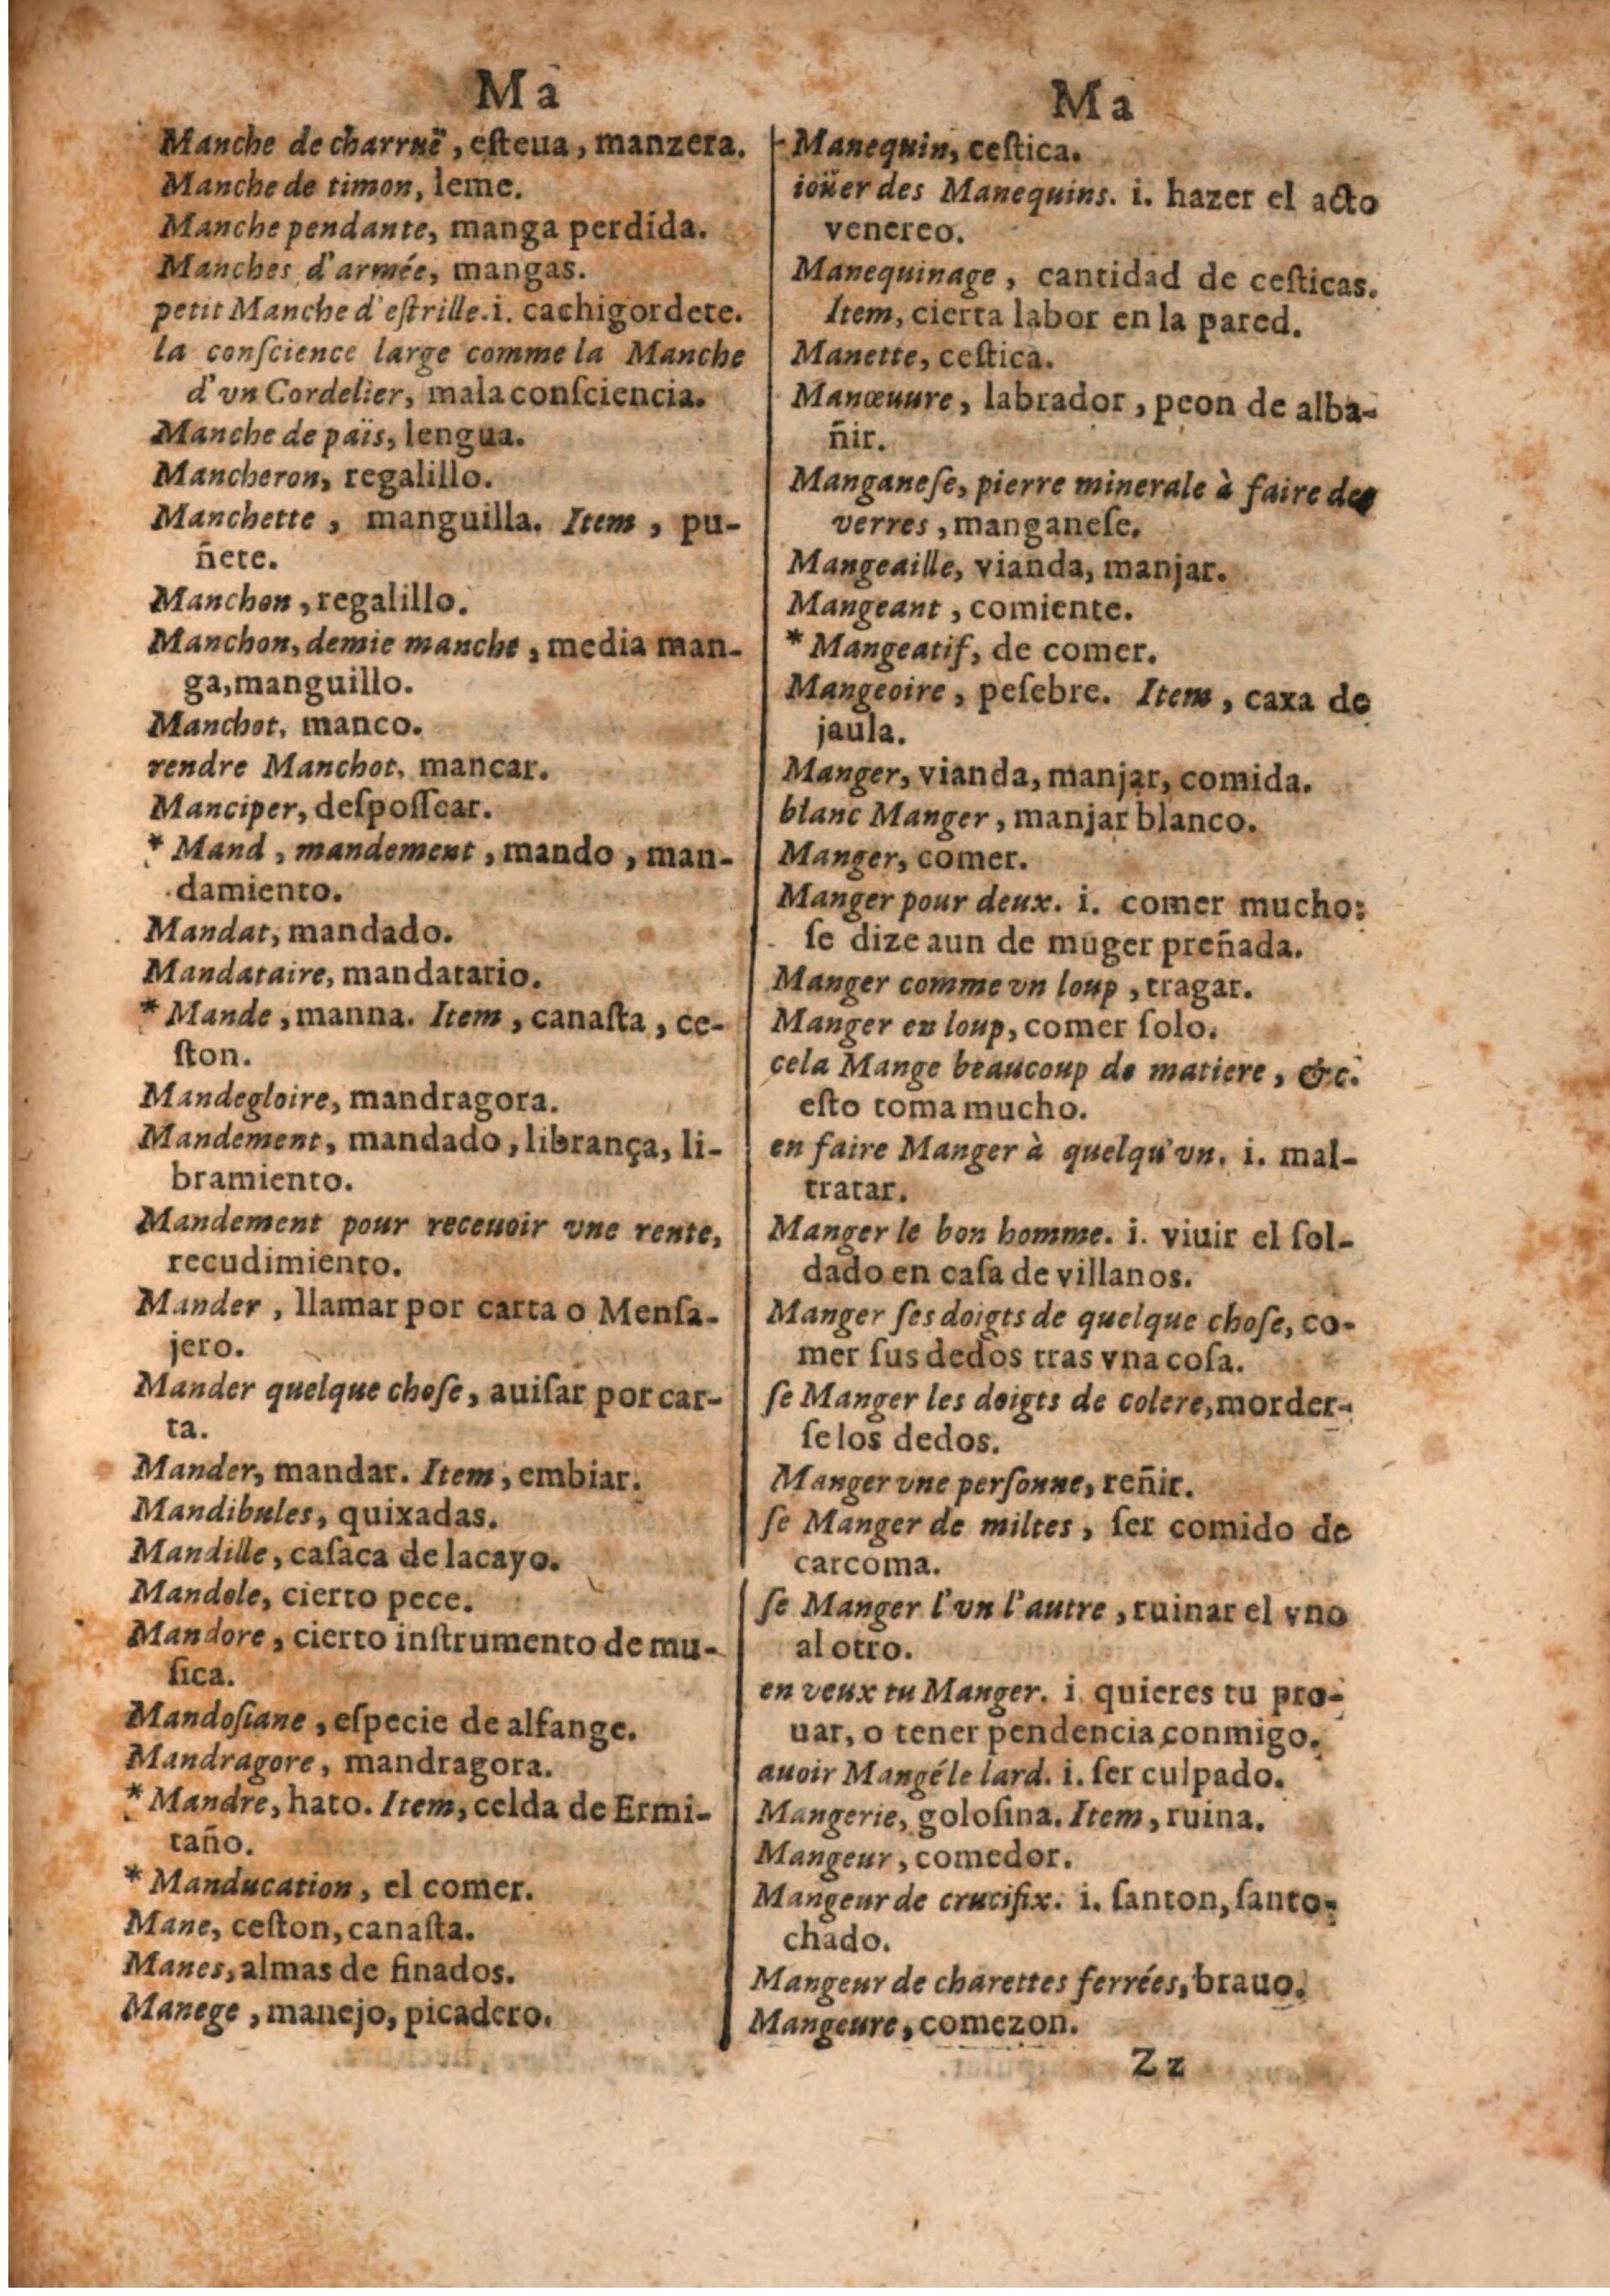 Ma
Manche de charruë, eſteua, manzera.
Manche de timon, leme.
Manche pendante, manga perdida.
Manches d'armée, mangas.
petit Manche d'eſtrille. i. cachigordete.
la conſcience large comme la Manche
d'vn Cordelier, mala conſciencia.
Manche de païs, lengua.
Mancheron, regalillo.
Manchette, manguilla. Item, pu-
ñete.
Manchon, regalillo.
Manchon, demie manche, media man-
ga, manguillo.
Manchot, manco.
rendre Manchot, mancar.
Manciper, deſpoſſear.
* Mand, mandement, mando, man-
damiento.
Mandat, mandado.
Mandataire, mandatario.
* Mande, manna. Item, canaſta, ce-
ſton.
Mandegloire, mandragora.
Mandement, mandado, librança, li-
bramiento.
Mandement pour receuoir vne rente,
recudimiento.
Mander, llamar por carta o Menſa-
jero.
Mander quelque choſe, auiſar por car-
ta.
Mander, mandar. Item, embiar.
Mandibules, quixadas.
Mandille, caſaca de lacayo.
Mandole, cierto pece.
Mandore, cierto inſtrumento de mu-
ſica.
Mandoſiane, eſpecie de alfange.
Mandragore, mandragora.
* Mandre, hato. Item, celda de Ermi-
taño.
* Manducation, el comer.
Mane, ceſton, canaſta.
Manes, almas de finados.
Manege, manejo, picadero.
Ma
Manequin, ceſtica.
ioüer des Manequins. i. hazer el acto
venereo.
Manequinage, cantidad de ceſticas.
Item, cierta labor en la pared.
Manette, ceſtica.
Manœuure, labrador, peon de alba-
ñir.
Manganeſe, pierre minerale à faire des
verres, manganeſe.
Mangeaille, vianda, manjar.
Mangeant, comiente.
* Mangeatif, de comer.
Mangeoire, peſebre. Item, caxa de
jaula.
Manger, vianda, manjar, comida.
blanc Manger, manjar blanco.
Manger, comer.
Manger pour deux. i. comer mucho:
ſe dize aun de muger preñada.
Manger comme vn loup, tragar.
Manger en loup, comer ſolo.
cela Mange beaucoup de matiere, &c.
eſto toma mucho.
en faire Manger à quelqu'vn. i. mal-
tratar.
Manger le bon homme. i. viuir el ſol-
dado en caſa de villanos.
Manger ſes doigts de quelque choſe, co-
mer ſus dedos tras vna coſa.
ſe Manger les doigts de colere, morder-
ſe los dedos.
Manger vne perſonne, reñir.
ſe Manger de miltes, ſer comido de
carcoma.
ſe Manger l'vn l'autre, ruinar el vno
al otro.
en veux tu Manger. i. quieres tu pro-
uar, o tener pendencia conmigo.
auoir Mangé le lard. i. ſer culpado.
Mangerie, goloſina. Item, ruina.
Mangeur, comedor.
Mangeur de crucifix. i. ſanton, ſanto-
chado.
Mangeur de charettes ferrées, brauo.
Mangeure, comezon.
Zz